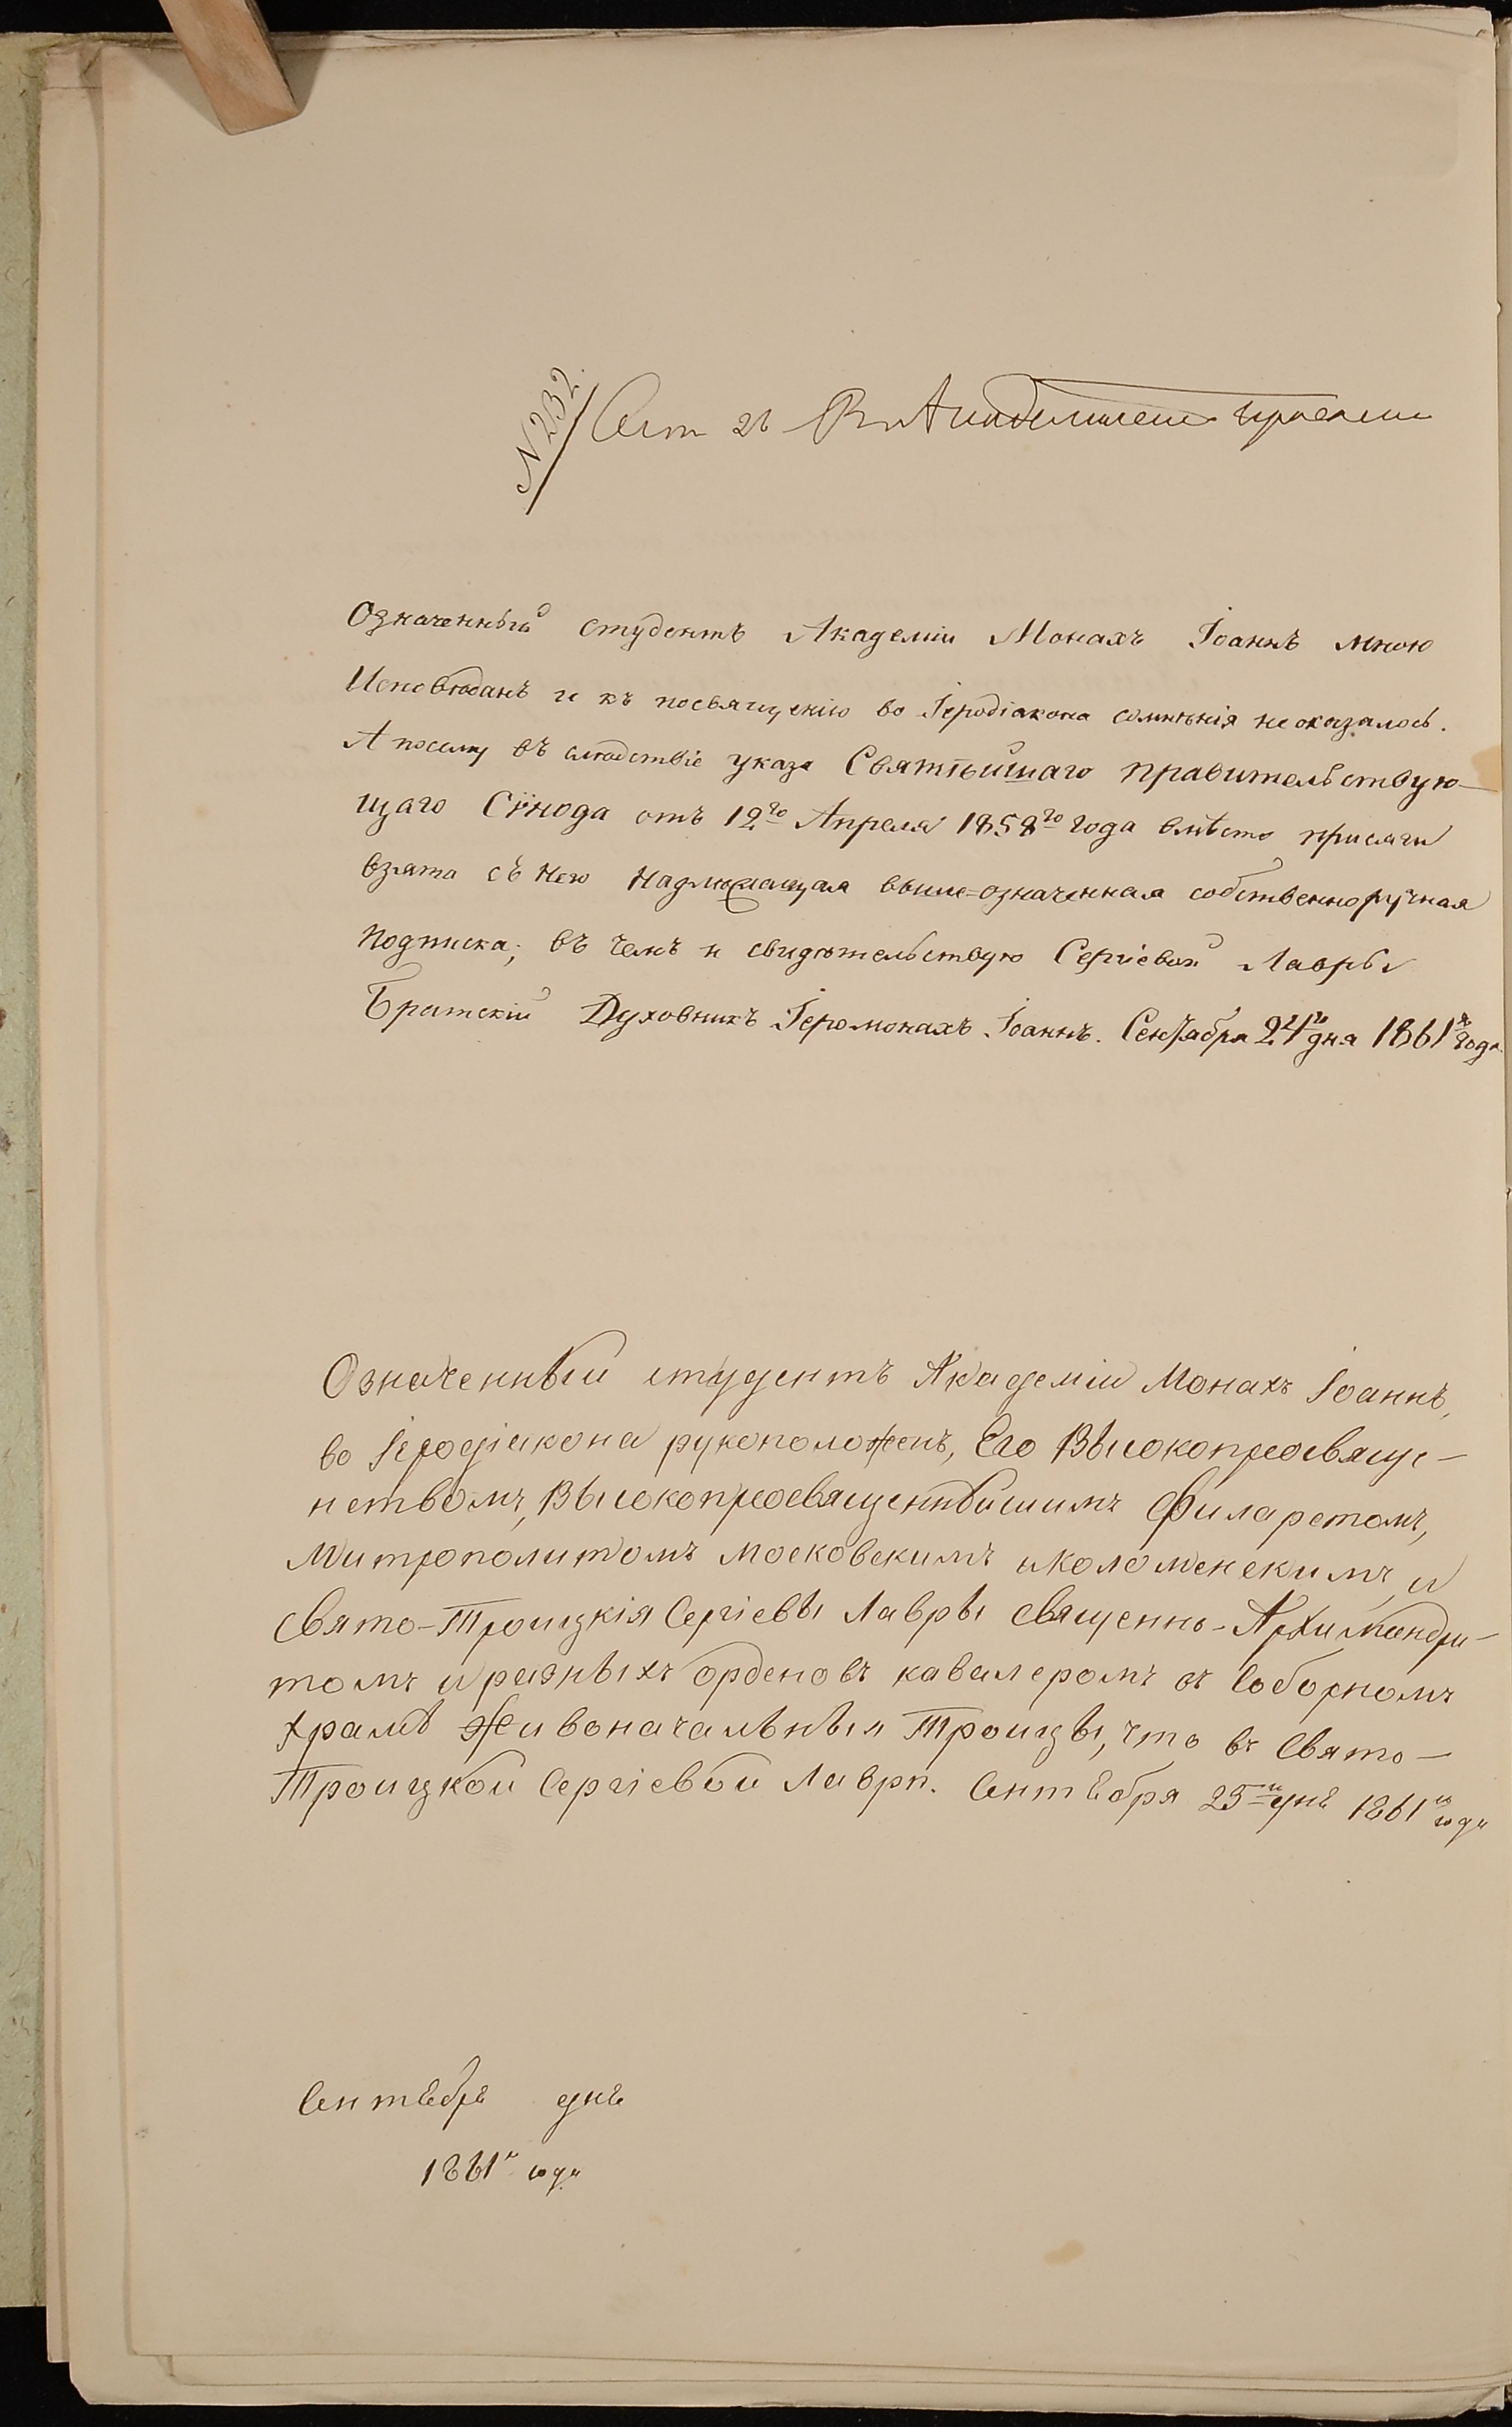 N 232.
Означенный студентъ Академіи Монахъ Іоаннъ мною
Исповѣданъ и къ посвященію во Іеродіакона сомнѣнія не оказалось.
А посему въ слѣдствіе указа Святѣйшаго правительствую-
щаго Сѵнода отъ 12го Апреля 1858го года вмѣсто присяги
взята съ него надлежащая выше=означенная собственноручная
подписка; въ чемъ и свидѣтельствую Сергіевой Лавры
Братскій Духовникъ Іеромонахъ Іоаннъ. Сентября 24го дня 1861 года
Означенный студентъ Академіи Монахъ Іоаннъ,
во Іеродіакона рукоположенъ, Его Высокопреосвяще-
нствомъ, Высокопреосвященнѣйшимъ Филаретомъ,
Митрополитомъ Московскимъ и Коломенскимъ, и
Свято-Троицкія Сергіевы Лавры Священно-Архимандри-
томъ и разныхъ орденовъ кавалеромъ въ Соборномъ
храмѣ Живоначальныя Троицы, что въ Свято-
Троицкой Сергіевой Лаврѣ. Сентября 25 дня 1861 года
Сентября дня
1861 года